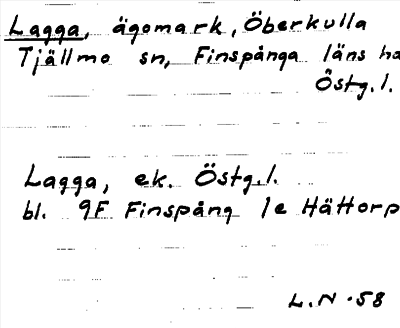 Lagga, ägomark, Öberkulla
Tjällmo sn, Finspånga läns ha
Östg.l.
Lagga, ek. Östg.l.
bl. 9F Finspång 1e Hättorp
L.N.58